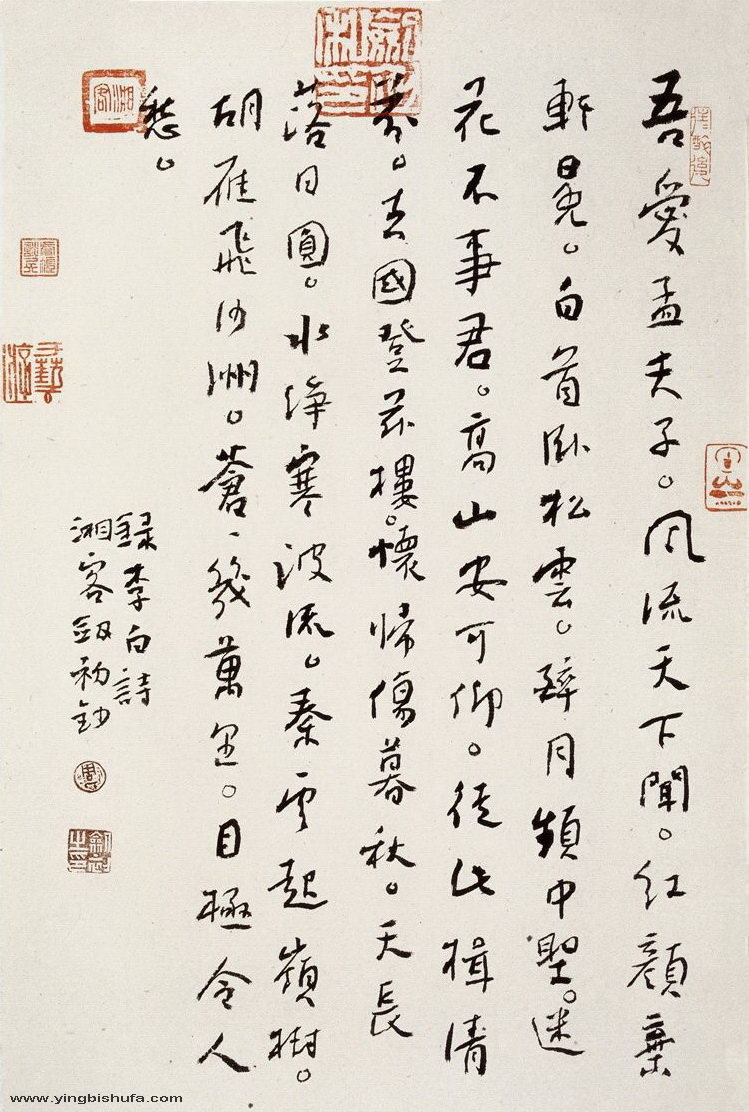 吾愛孟夫子。風流天下聞。紅顏棄
軒冕。白首卧松雲。醉月頻中聖。迷
花不事君。高山安可仰。徒此揖清
芬。去國登茲樓。懷歸傷暮秋。天長
落日圓。水淨寒波流。秦雲起嶺樹。
胡雁飛沙洲。蒼〻幾萬里。目極令人
愁。
録李白詩
湘客劔初鈔
湘客
www.yingbishufa.com